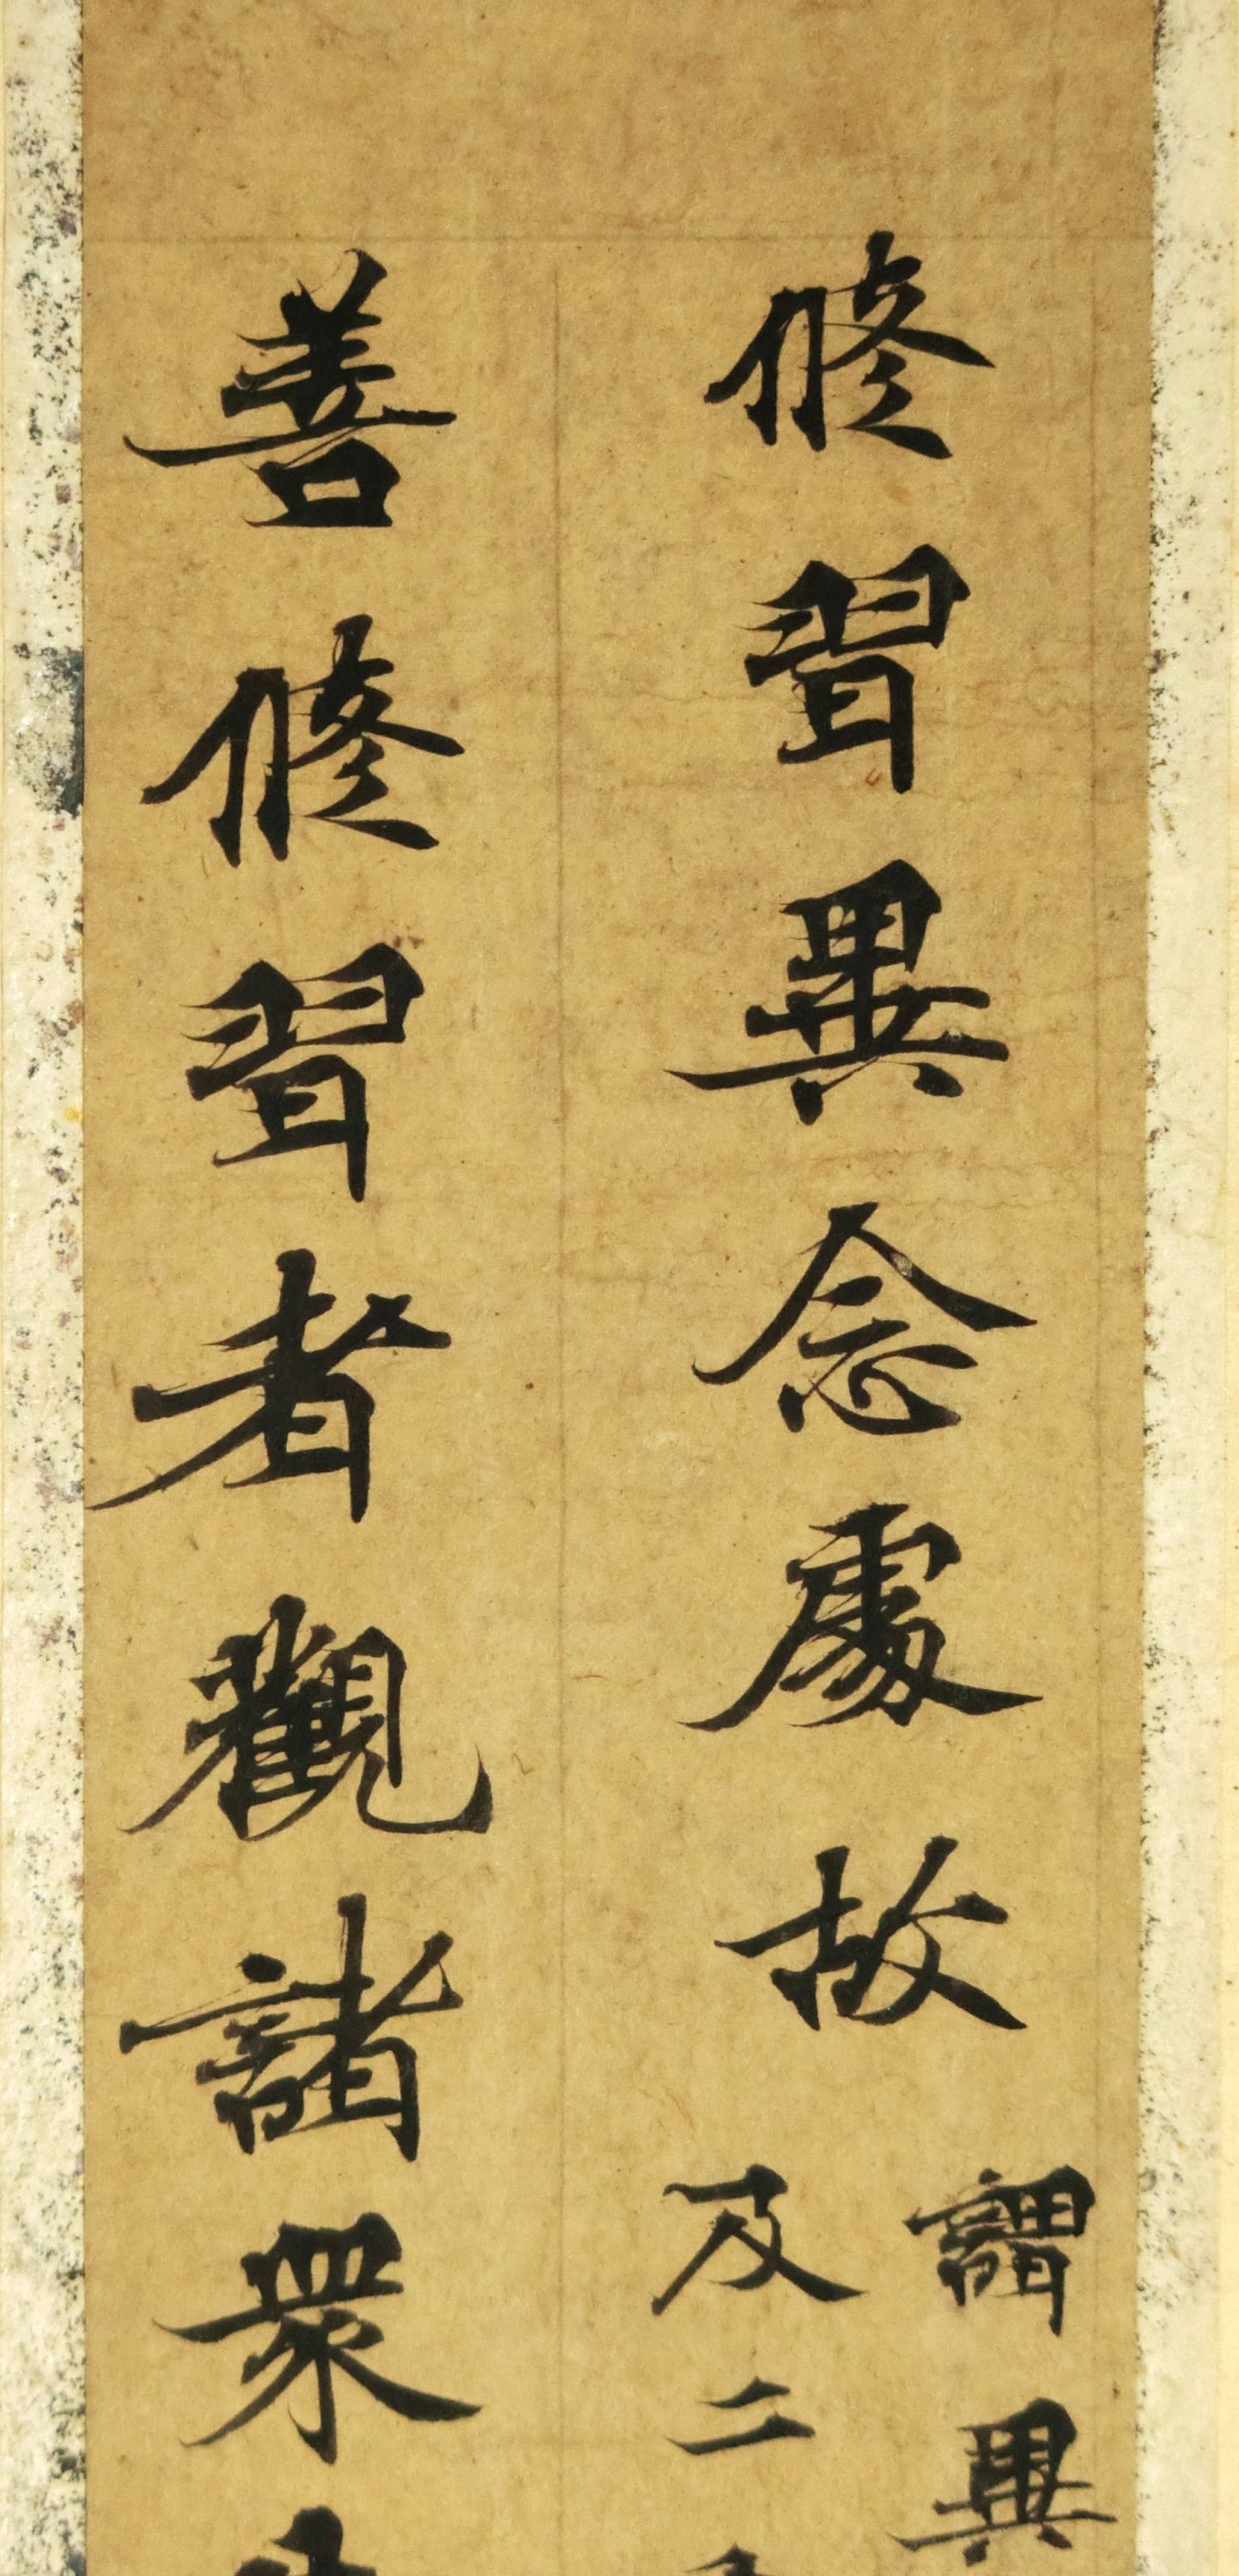 修習異念處故
謂異
及二
善修習者觀諸衆